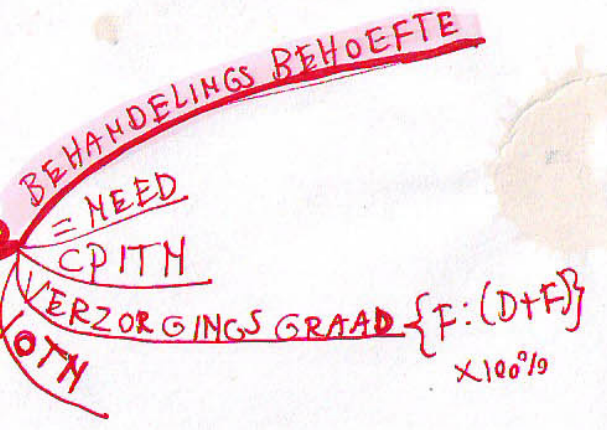 BEHANDELINGS BEHOEFTE
= NEED
CPITN
VERZORGINGS GRAAD {F:(D+F)}
x100%
IOTN